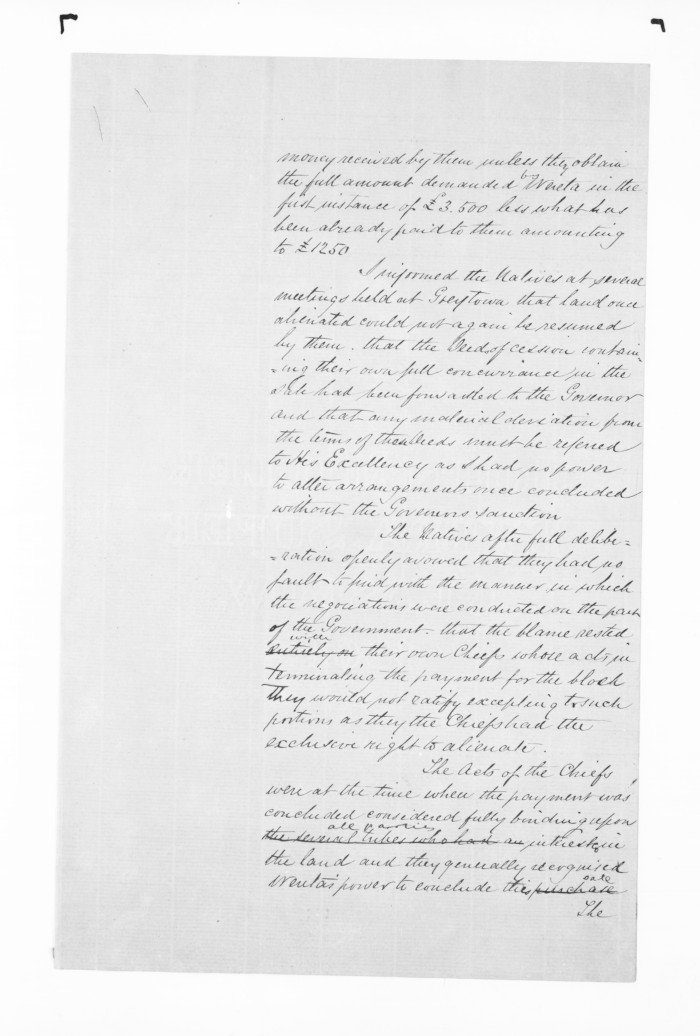 money received by them unless they obtain
the full amount demanded by Wereta in the
first instance of £3.500 less what has
been already paid to them amounting
to £1250
I informed the Natives at several
meetings held at Greytown that land once
alienated could not again be resumed
by them. that the Deeds of cession contain-
-ing their own full concurrance in the
sale had been forwarded to the Governor
and that any material deviation from
the terms of these deeds must be referred
to His Excellency as I had no power
to alter arrangements once concluded
without the Governors sanction
The Natives after full delibe-
-ration openly avowed that they had no
fault to find with the manner in which
the negociations were conducted on the part
of the Government - that the blame rested
with
entirely on their own Chiefs whose acts in
terminating the payment for the block
they would not ratify excepting to such
portions as they the Chiefs had the
exclusive right to alienate.
The Acts of the Chiefs
were at the time when the payment was
concluded considered fully binding upon
all parties
the several tribes who had an interest in
the land and they generally recognised
Wereta's power to conclude the
sale
purchase
The